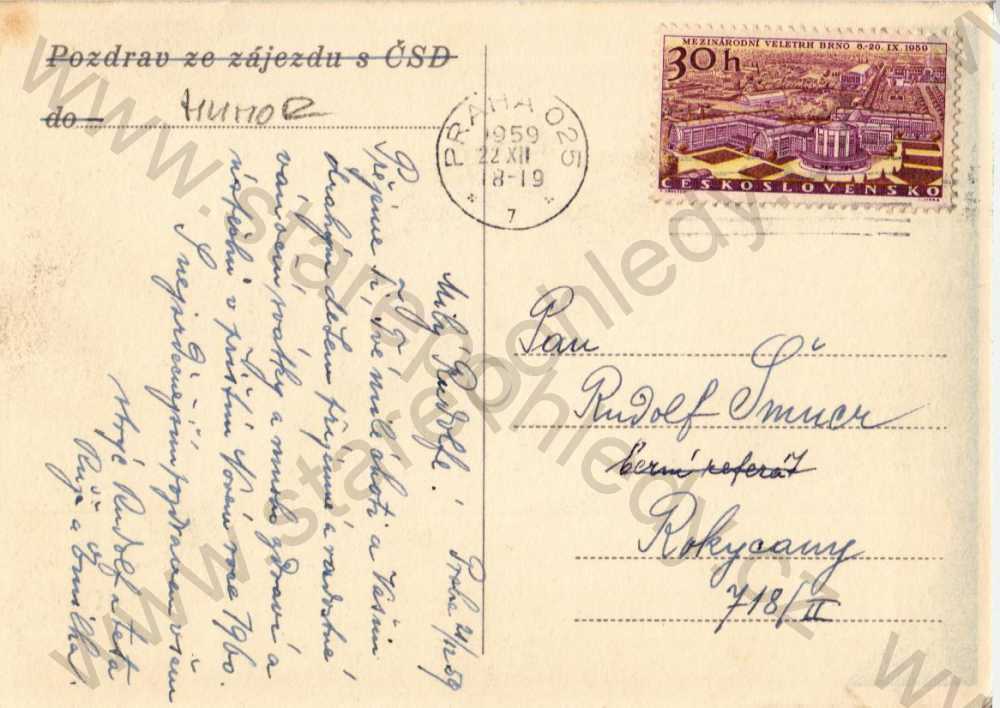 Pozdrav ze zájezdu s ČSD
do
HUMOR
MEZINÁRODNÍ VELETRH BRNO 6.-20. IX. 1959
30h
ČESKOSLOVENSKO
PRAHA 025
1959
22 XII
18-19
7
Milý Rudolfe! Praha 21/12 59
Přejeme Ti, Tvé milé choti a Vašim
drahým dětem příjemné a radostné
vánoční svátky a mnoho zdraví a
v příštím Novém roce 1960.
S nejsrdečnějším pozdravem všem
strýc Rudolf a teta
Pan
Rudolf Šmucr
Berní referát
Rokycany
718/II
www.starepohledy.cz
www.starepohledy.cz